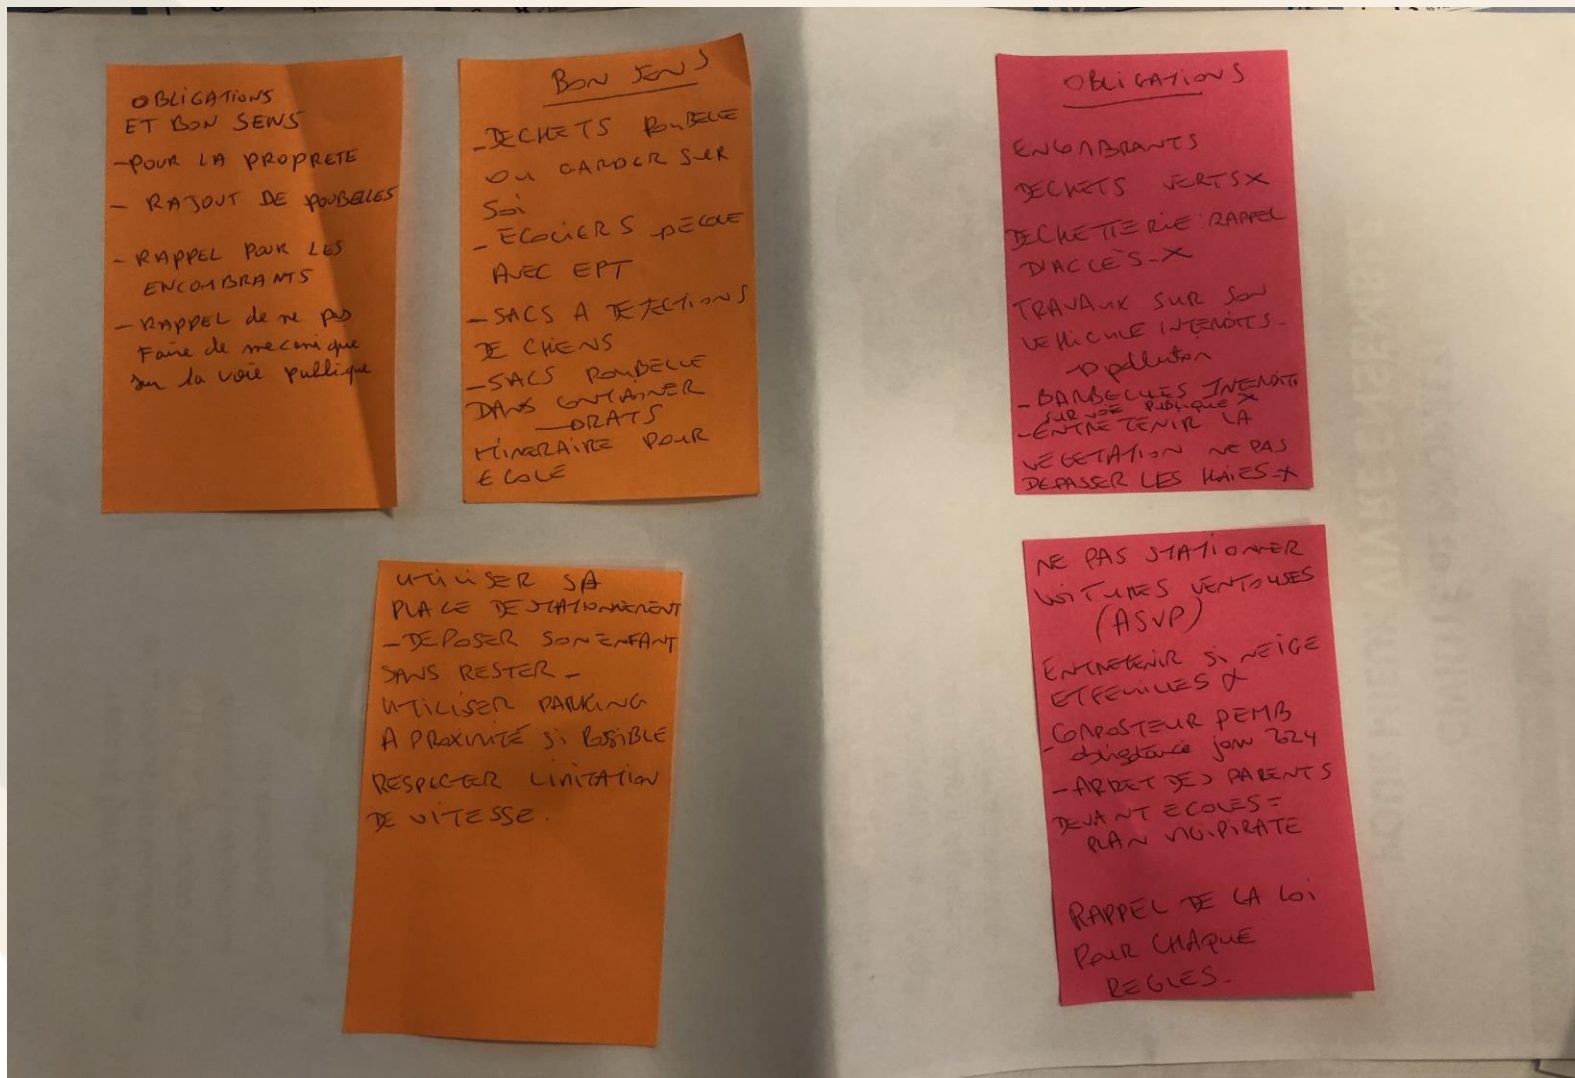 OBLIGATIONS
ET BON SENS
- POUR LA PROPRETE
- RAJOUT DE POUBELLES
- RAPPEL POUR LES
ENCOMBRANTS
- RAPPEL de ne pas
Faire de mecanique
sur la voie publique
BON SENS
- DECHETS POUBELLE
OU GARDER SUR
SOI
- ECOLIERS
AVEC EPT
- SACS A DEJECTIONS
DE CHIENS
- SACS POUBELLE
DANS CONTAINER
- DRATS
ITINERAIRE POUR
ECOLE
UTILISER SA
PLACE DE STATIONNEMENT
- DEPOSER SON ENFANT
SANS RESTER -
UTILISER PARKING
A PROXIMITÉ Si POSSIBLE
RESPECTER LIMITATION
DE VITESSE.
OBLIGATIONS
ENCOMBRANTS
DECHETS VERTS X
DECHETTERIE RAPPEL
D'ACCÈS - X
TRAVAUX SUR SON
VEHICULE INTERDITS -
→ pollution
- BARBECUES INTERDITS
SUR VOIE PUBLIQUE X
- ENTRETENIR LA
VEGETATION NE PAS
DEPASSER LES HAIES - X
NE PAS STATIONNER
VOITURES VENTOUSES
(ASVP)
ENTRETENIR Si NEIGE
ET FEUILLES X
- COMPOSTEUR PEMB
janv 2024
- ARRET DES PARENTS
DEVANT ECOLES =
PLAN VIGIPIRATE
RAPPEL DE LA LOI
POUR CHAQUE
REGLES -